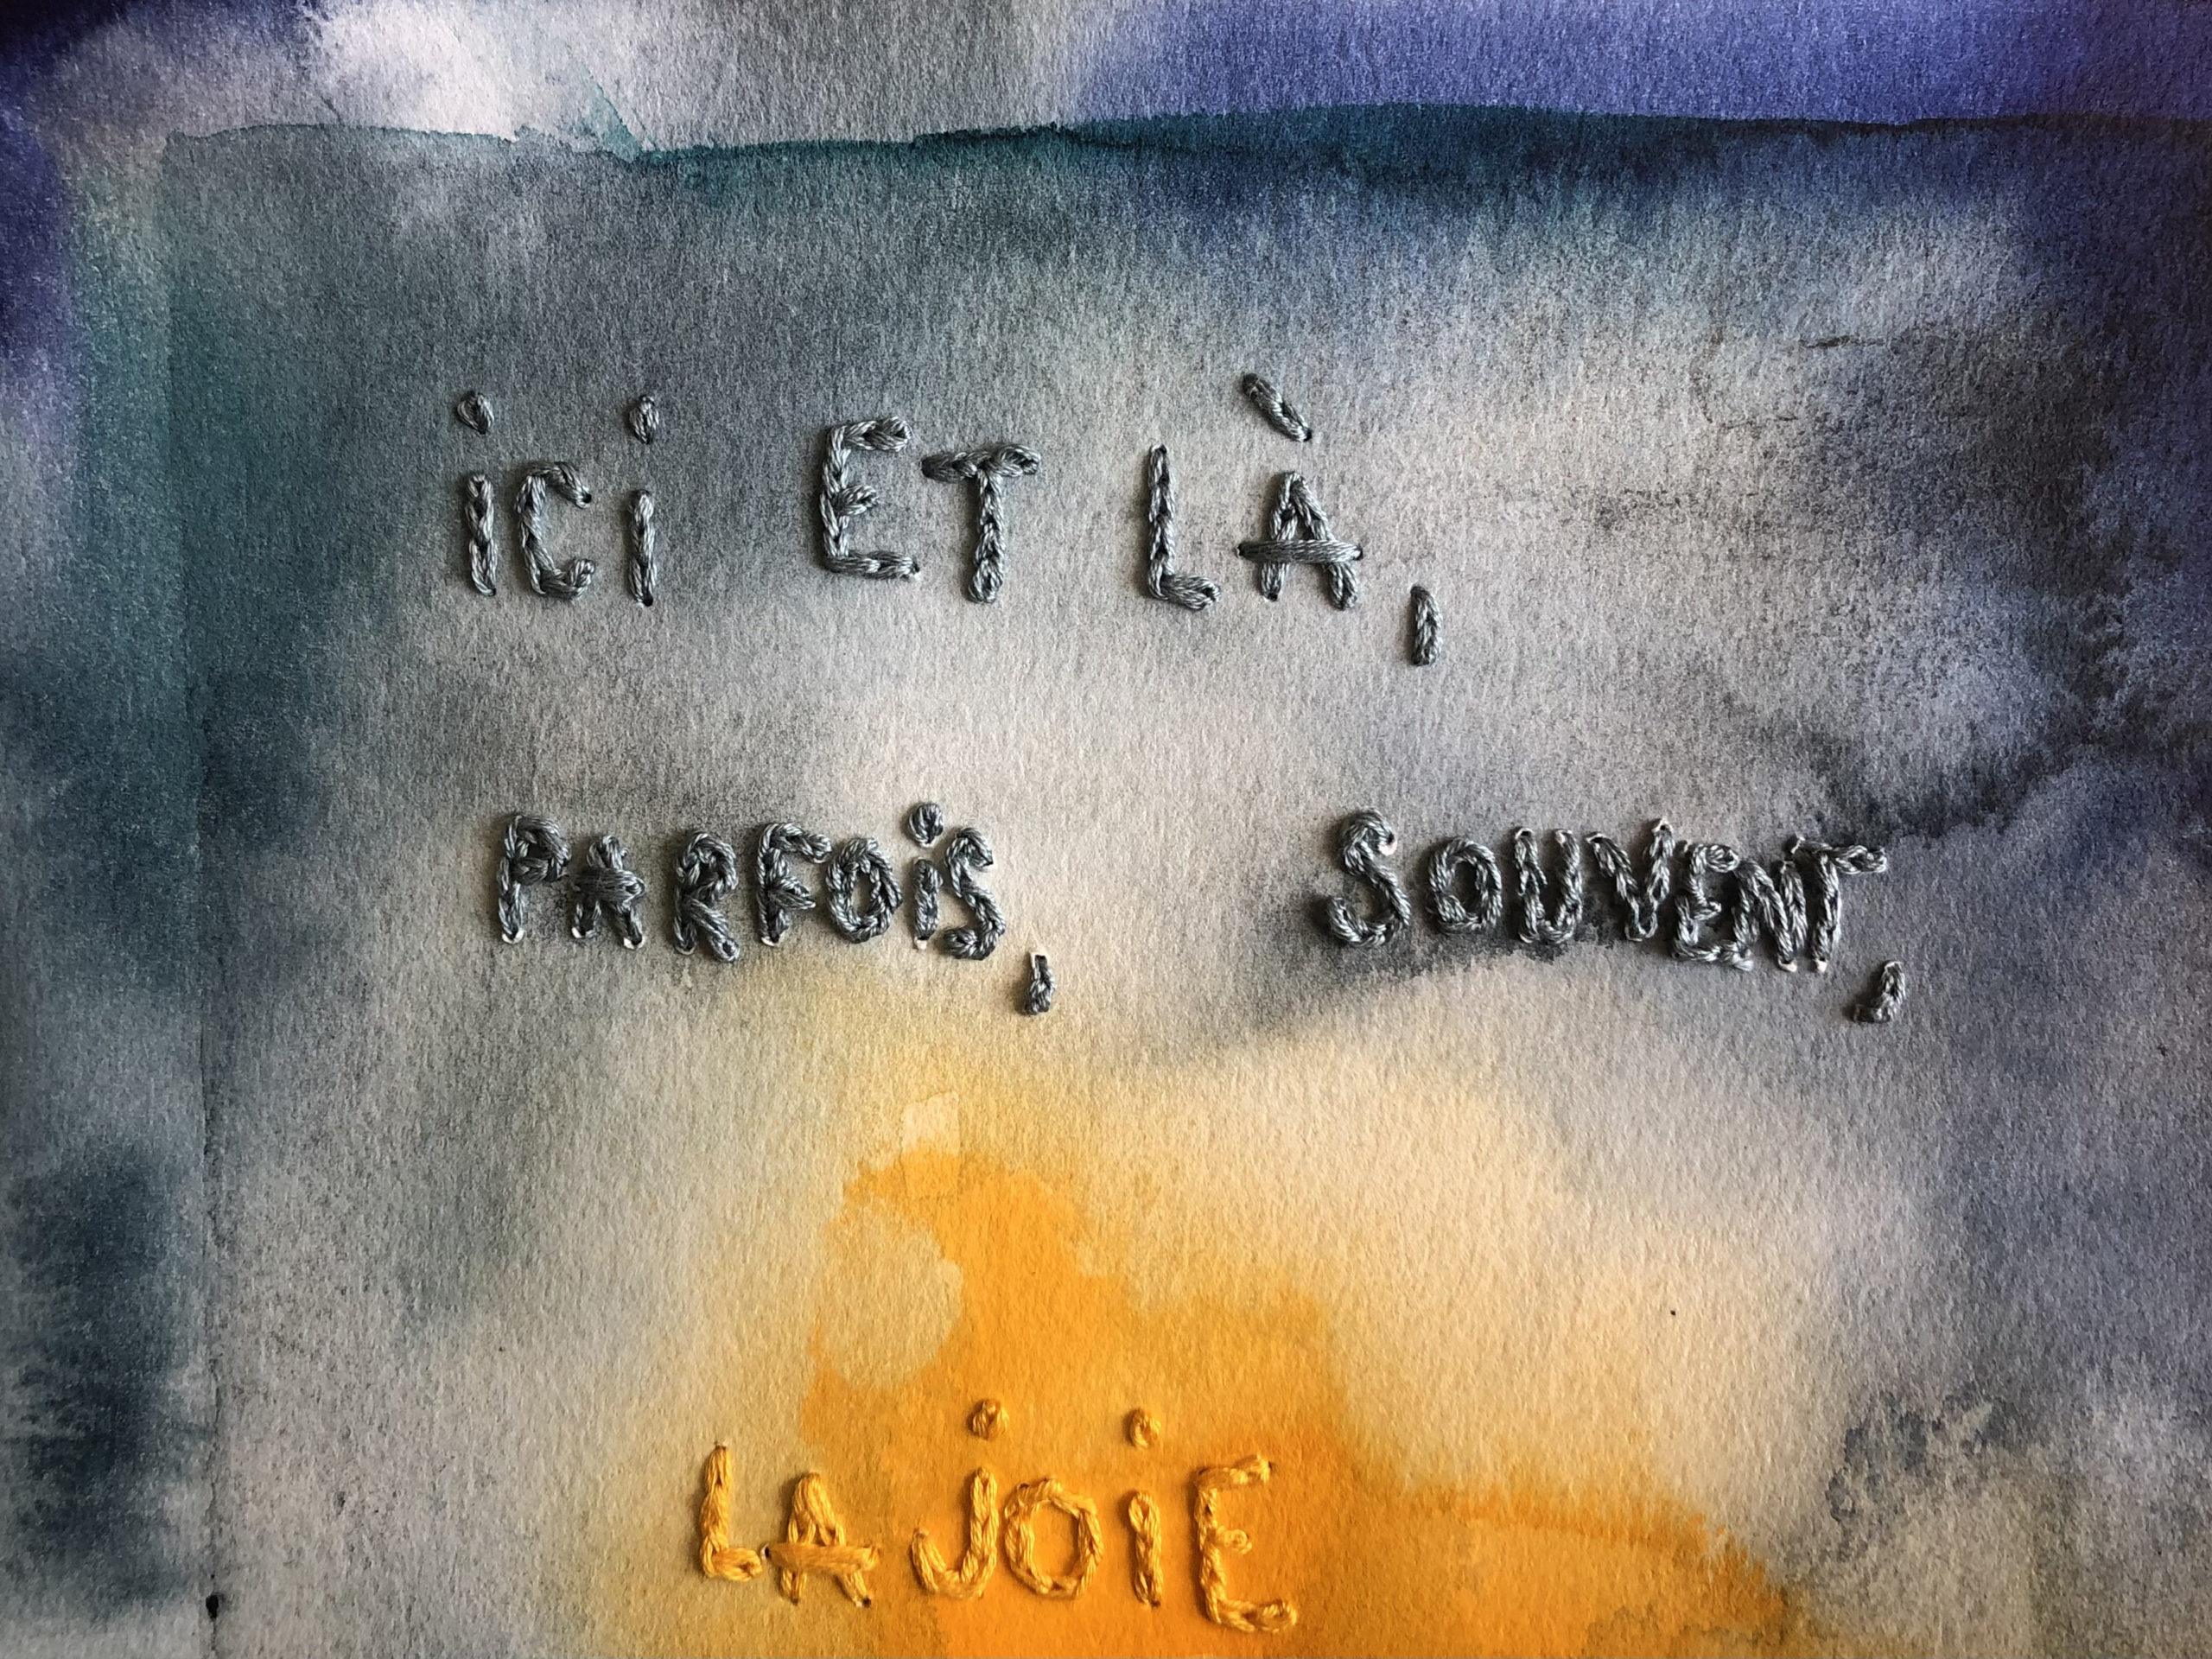 iCi ET LÀ,
PARFOiS, SOUVENT,
LA JOiE